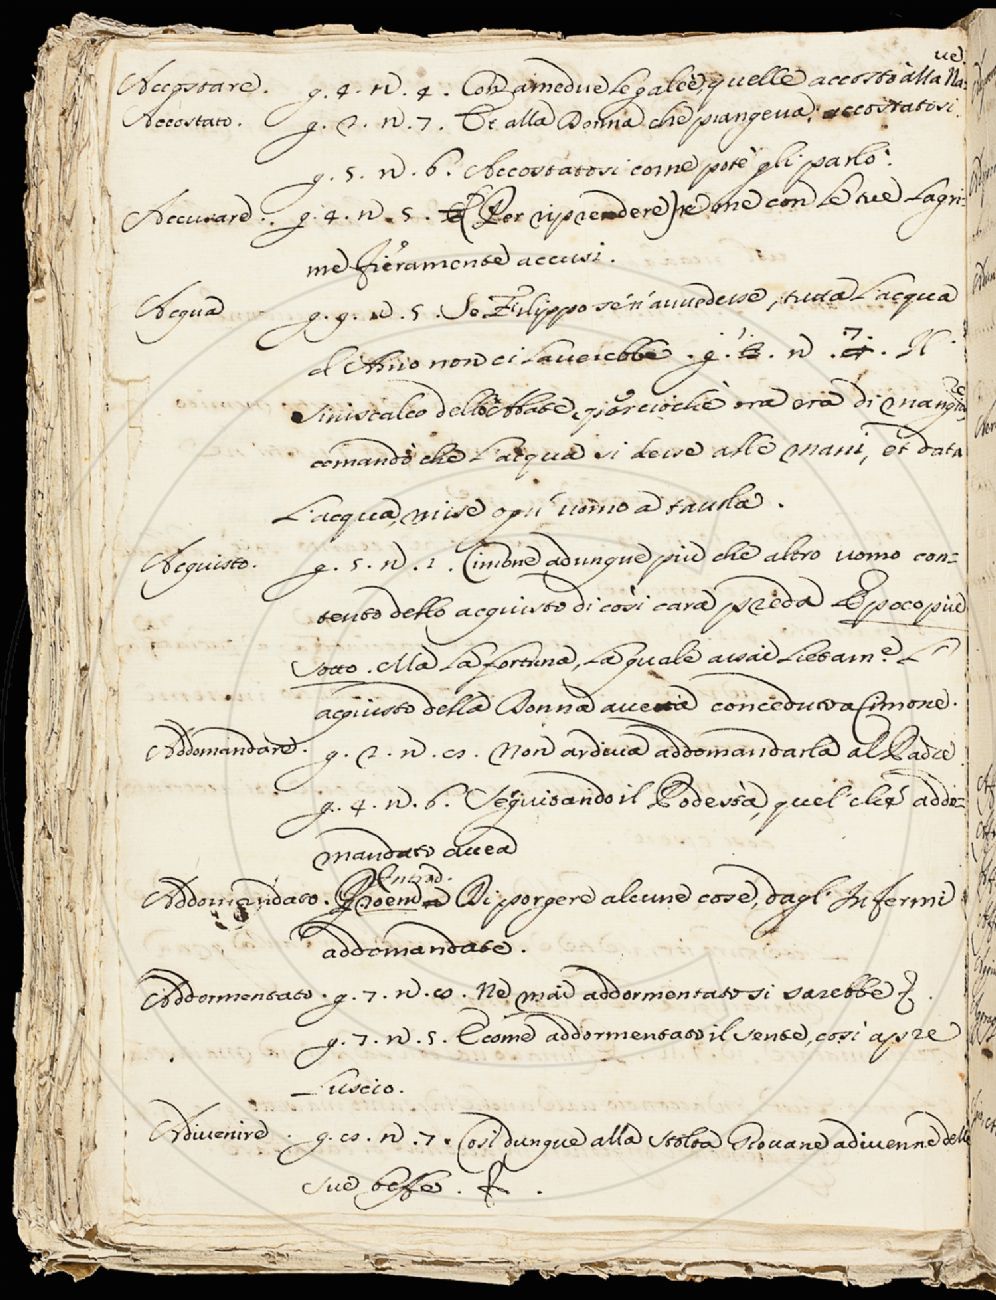 ve
Accostare. g. 4. n. 4. Con amedue le galee, quelle accostò alla Na:
Accostato. g. 2. n. 7. Et alla Donna che piangeva, accostatosi.
g. 5. n. 6. Accostatosi come potè gli parlò.
Accusare. g. 4. n. 5. (Per riprendere) se me con le tue lagri-
me fieramente accusi.
Acqua g. 9. n. 5. Se Filippo se n'avvedesse, tutta l'acqua
d'Arno non ci laverebbe. g. n. 7. Il
Siniscalco dello Abate, perciochè ora era di mangiare
comandò che l'acqua si desse alle mani, et data
L'acqua, mise ogn'uomo a tavola.
Acquisto. g. 5. n. 1. Cimone adunque più che altro uomo con-
tento dello acquisto di così cara preda E poco più
sotto. Ma La fortuna, la quale assai lietam.e L'
acquisto della Donna avea conceduta Cimone.
Addomandare. g. 2. n. co. Non ardiva addomandarla al Padre
g. 4. n. 6. Seguitando il Podestà, quel che addo-
mandato avea
Introd.
Addomandato. Proem Di porgere alcune cose, dagl'Infermi
addomandate.
Addormentato. g. 7. n. co. Nè mai addormentato si sarebbe
g. 7. n. 5. E come addormentato il sente, così apre
L'uscio.
Adivenire. g. co. n. 7. Così dunque alla stolta Giovane adivenne delle
sue beffe.